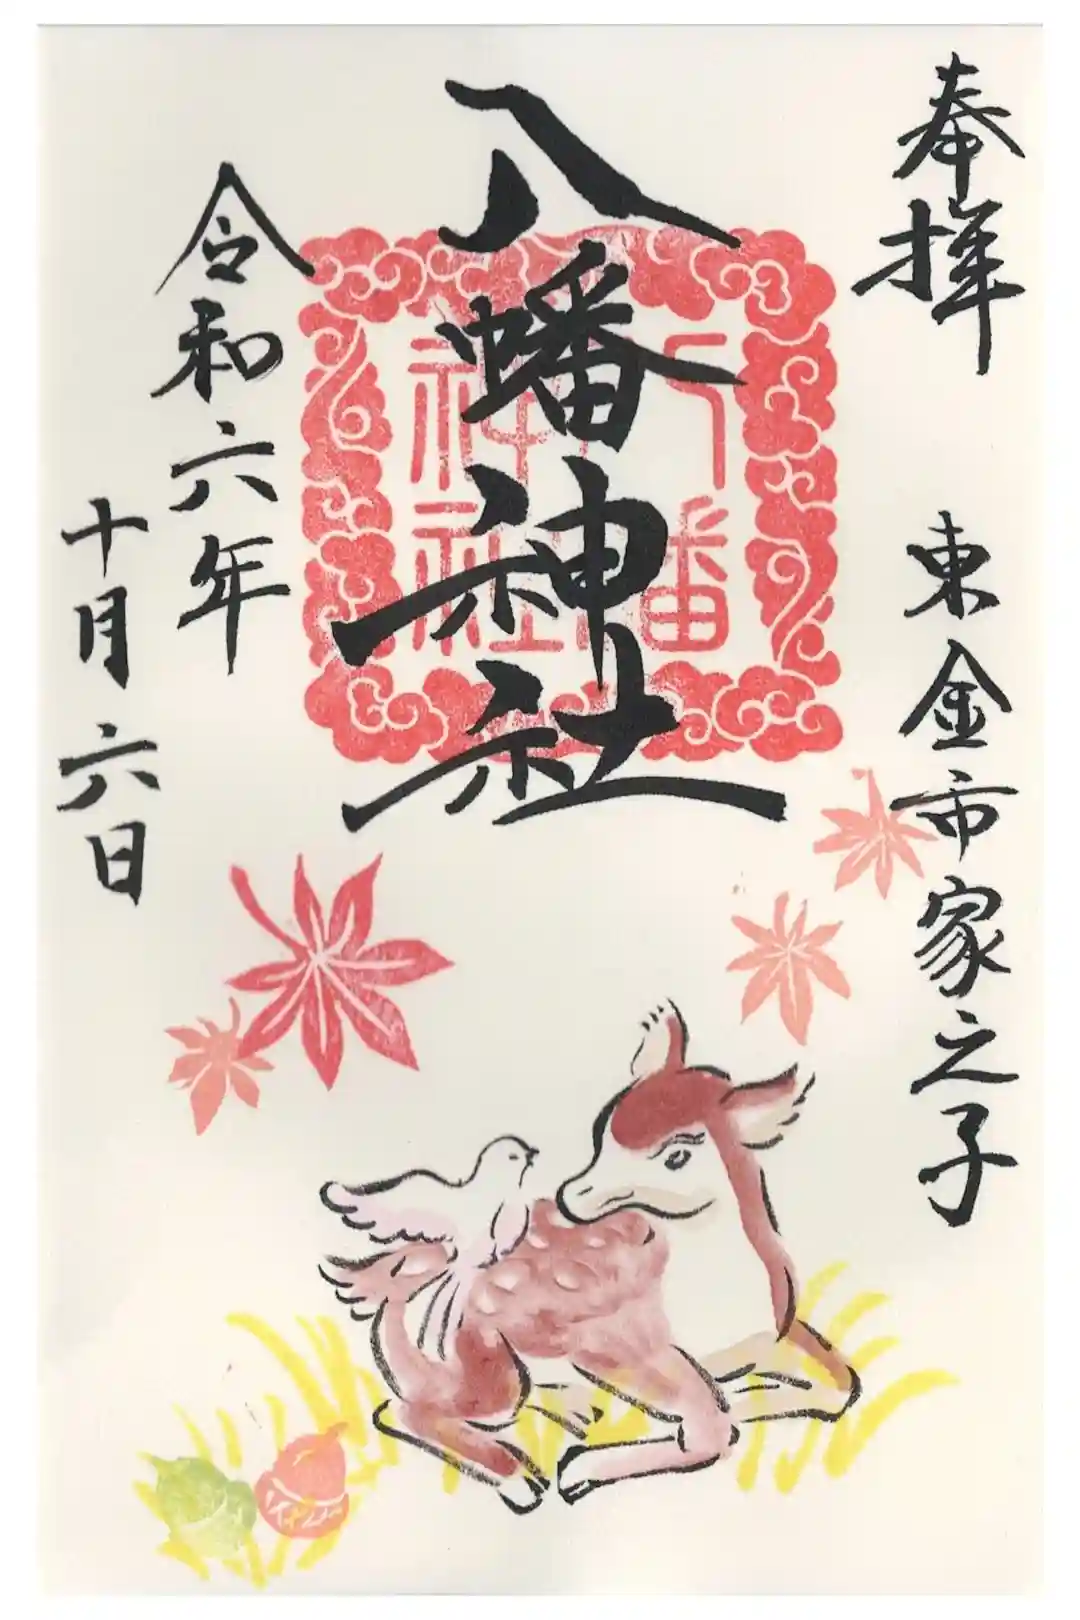 奉拝
東金市家之子
八幡神社
八幡神社
令和六年
十月六日